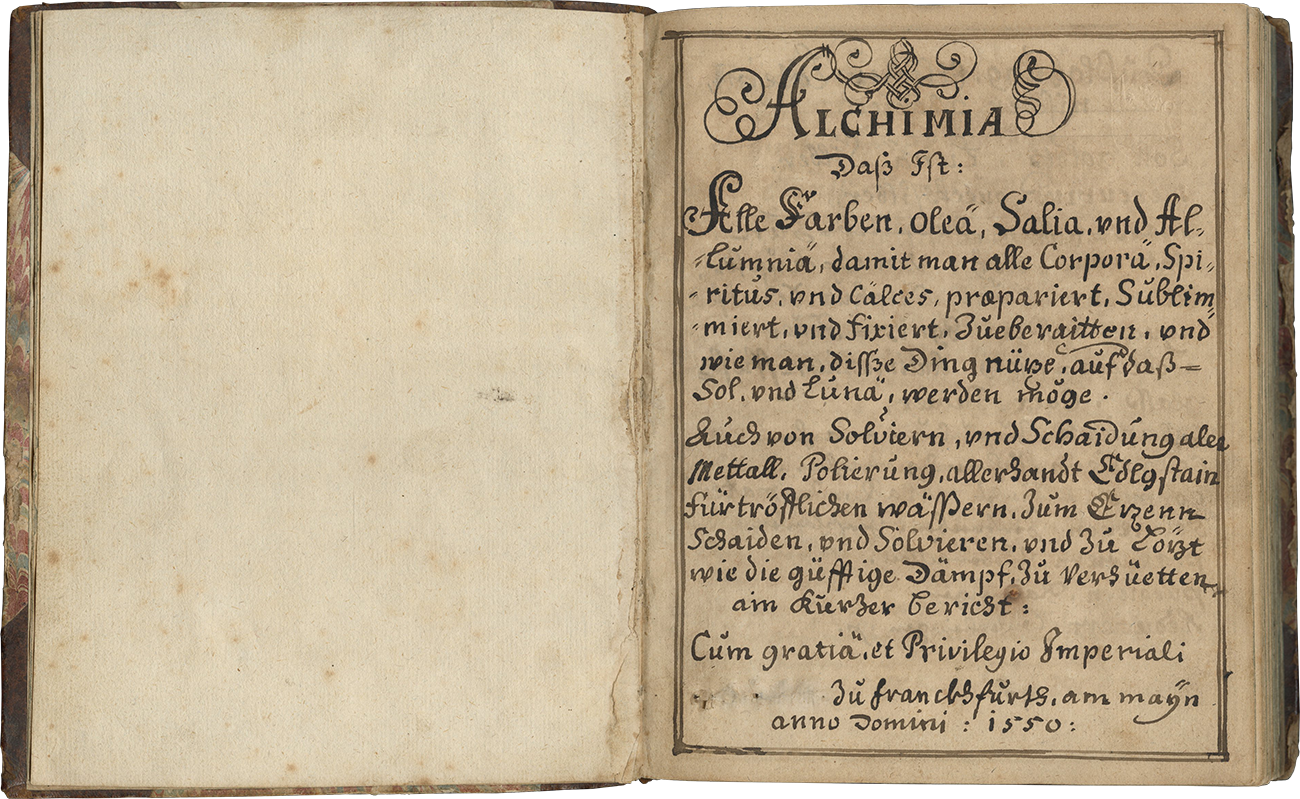 ALCHIMIA
Daß Ist:
Alle Farben, oleä, Salia, vnd Al,,
,,lumniä, damit man alle Corporä, Spi,,
,,ritus, vnd Cälces, præpariert, Sublim,,
,,miert, vnd fixiert, Zueberaitten, vnd
wie man, dißße Ding nüze, auf daß=
Sol, vnd Lunä, werden möge.
Auch von Solviern, vnd Schaidung aler
Mettall, Polierung, allerhandt Edlgstain
fürtröfflichen wässern, Zum Erzenn
Schaiden, vnd Solvieren, vnd Zu Lözt
wie die güfftige Dämpf, Zu Verhüetten,
ain Kurzer bericht:
Cum gratiä, et Privilegio Imperiali
Zu franckhfurth, am maÿn
anno Domini: 1550: